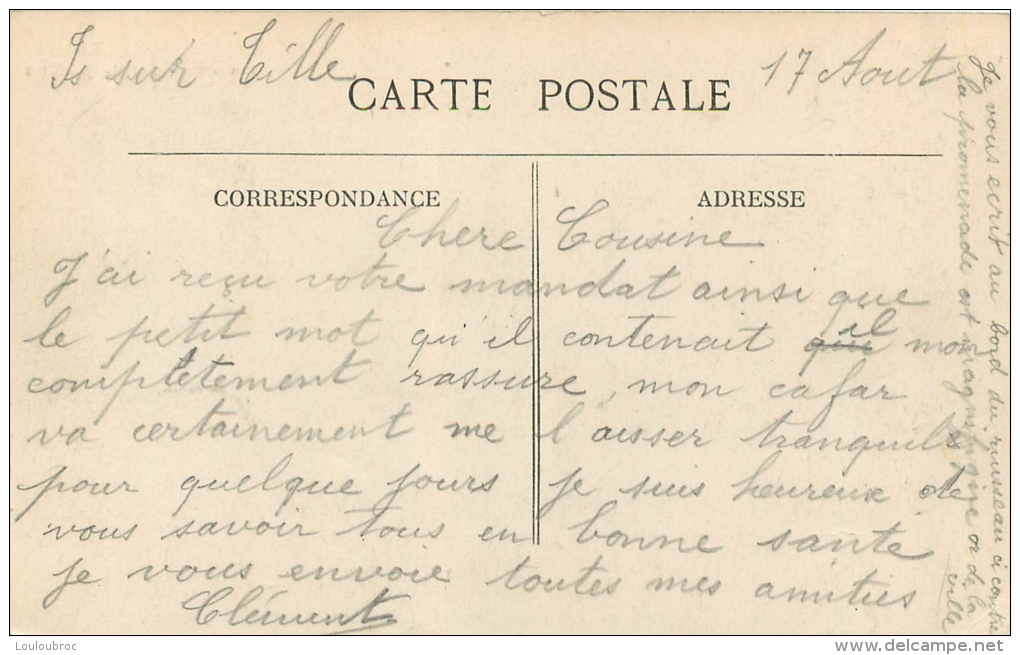 Is sur Tille
17 Aout
CARTE POSTALE
CORRESPONDANCE
ADRESSE
Chere Cousine
J'ai reçu votre mandat ainsi que
le petit mot qu'il contenait qui il mon
complètement rassure, mon cafar
va certainement me l'aisser tranquile
pour quelque jours je suis heureux de
vous savoir tous en bonne sante
je vous envoie toutes mes amities
Clément
Je vous ecrit au bord du ruisseau ci contre
la promenade est magnifique or de la
ville
Louloubroc
delcampe.net